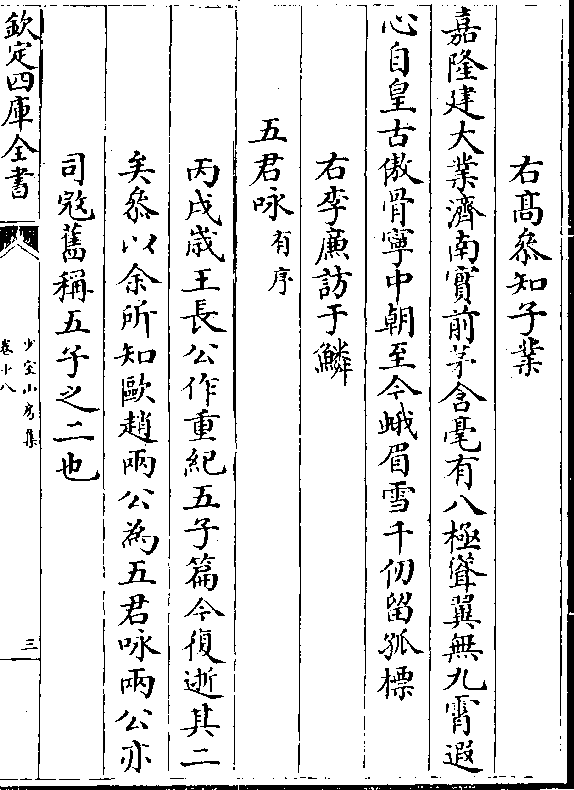 右髙叅知子業
嘉隆建大業濟南實前茅含毫有八極聳翼無九霄遐
心自皇古傲骨寧中朝至今峨眉雪千仞留孤標
右李亷訪于鱗
五君咏有序
丙戌嵗王長公作重紀五子篇今復逝其二
矣叅以余所知歐趙兩公為五君咏兩公亦
司寇舊稱五子之二也
欽定四庫全書
少室山房集
卷十八
三